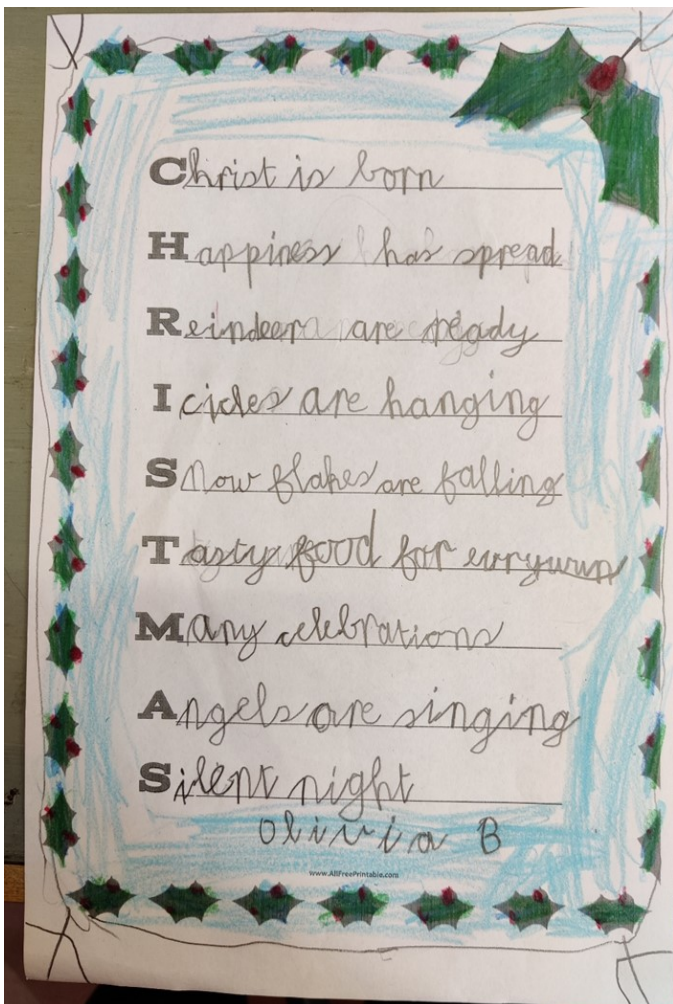 Christ is born
Happiness has spread
Reindeer are ready
Icicles are hanging
Snow flakes are falling
Tasty food for evryurn
Many celebrations
Angels are singing
Silent night
Olivia B
www.AllFreePrintable.com